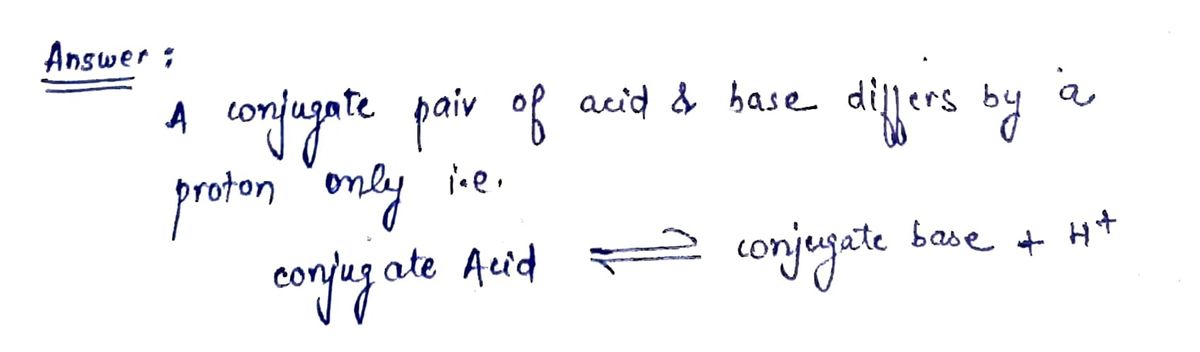 Answer :
A conjugate pair of acid & base differs by a
proton only i.e.
conjugate Acid ⇌ conjugate base + H⁺